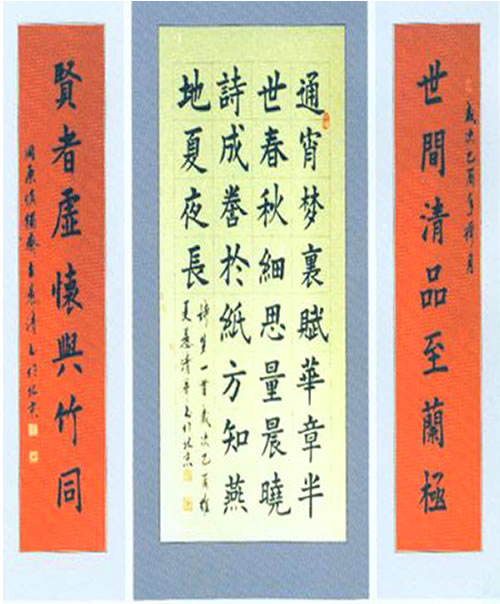 世間清品至蘭極
歲次乙酉年
通宵梦裏賦華章半
世春秋細思量晨曉
詩成謄於紙方知燕
地夏夜長
一首歲次乙酉
夏
賢者虛懷與竹同